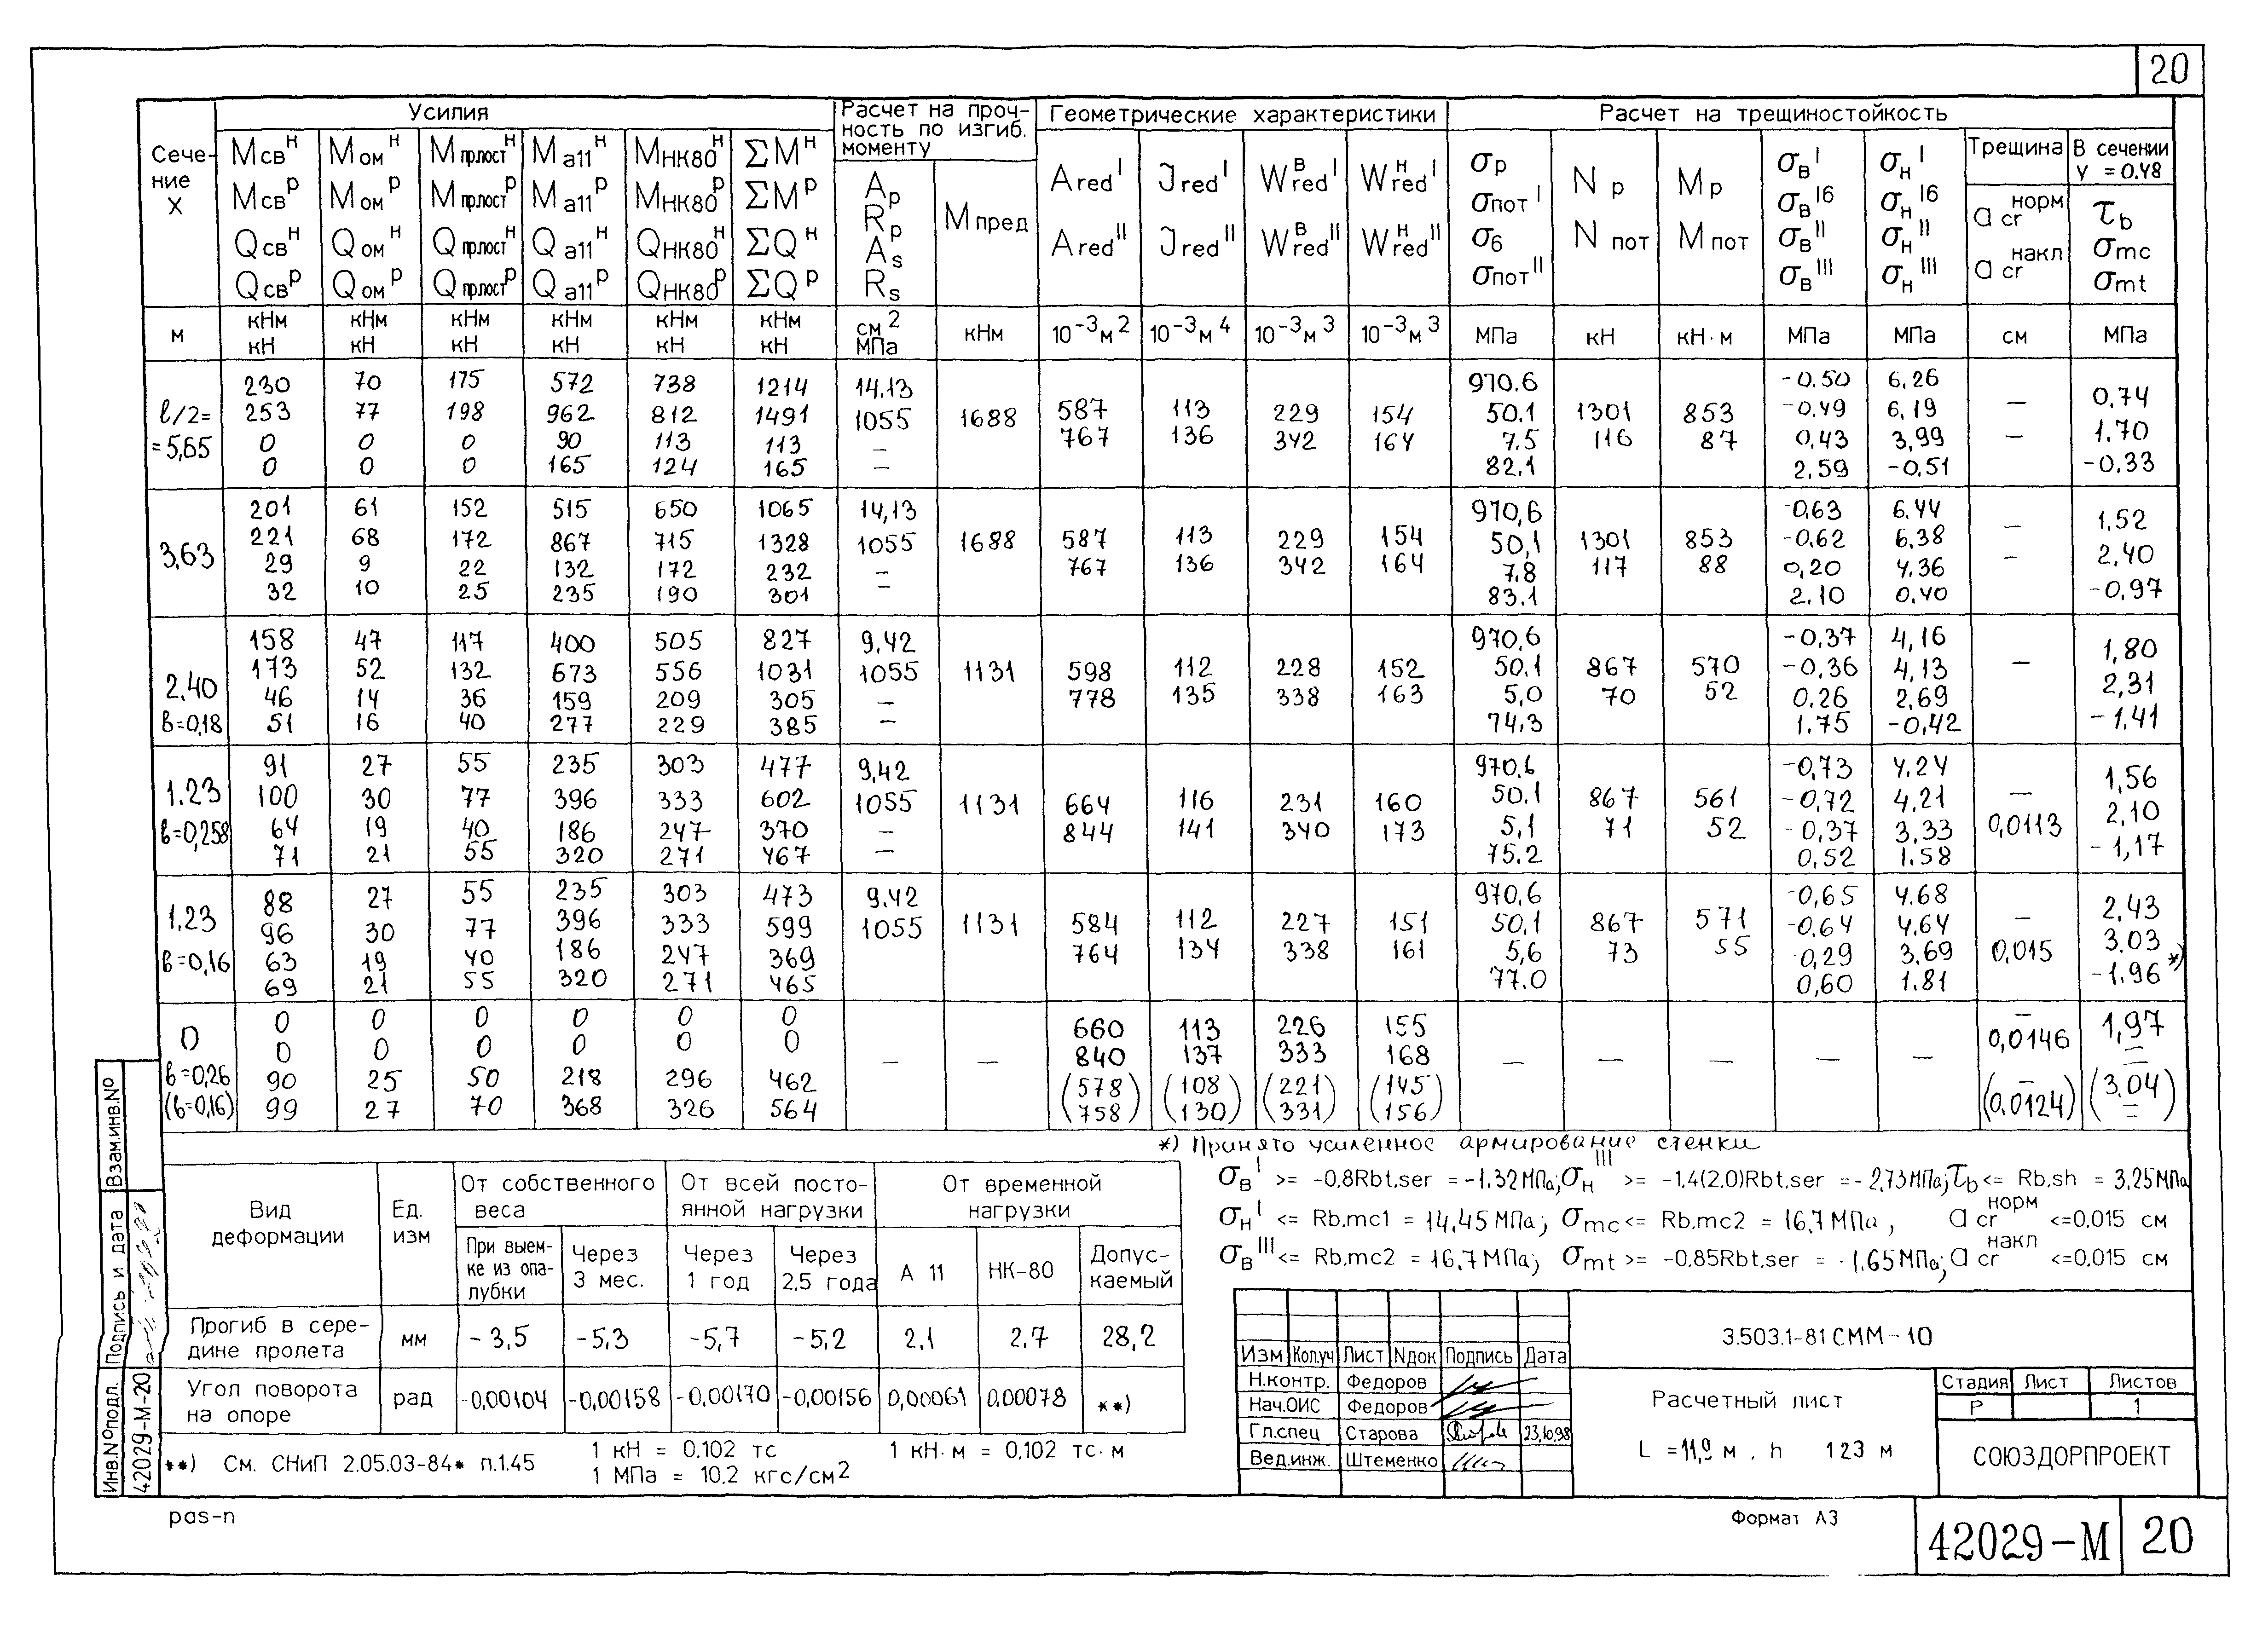 20
Сечение X | Усилия | Расчет на прочность по изгиб. моменту | Геометрические характеристики | Расчет на трещиностойкость
Mсвᴴ Mомᴴ Mпрлостᴴ Mа11ᴴ MНК80ᴴ ΣMᴴ
Mсвᵖ Mомᵖ Mпрлостᵖ Mа11ᵖ MНК80ᵖ ΣMᵖ
Qсвᴴ Qомᴴ Qпрлостᴴ Qа11ᴴ QНК80ᴴ ΣQᴴ
Qсвᵖ Qомᵖ Qпрлостᵖ Qа11ᵖ QНК80ᵖ ΣQᵖ
Ap Rp As Rs | Mпред
Ared I | Jred I | Wᴮred I | Wᴴred I
Ared II | Jred II | Wᴮred II | Wᴴred II
σр σпот I σб σпот II | Nр Nпот | Mр Mпот
σв I σв Iб σв II σв III | σн I σн Iб σн II σн III
Трещина | В сечении y = 0.48
a cr норм a cr накл | τb σmc σmt
м | кНм кН | кНм кН | кНм кН | кНм кН | кНм кН | кНм кН | см2 МПа | кНм | 10⁻³м2 | 10⁻³м4 | 10⁻³м3 | 10⁻³м3 | МПа | кН | кН·м | МПа | МПа | см | МПа
ℓ/2= =5,65
230 70 175 572 738 1214 14,13 970.6 -0.50 6.26
253 77 198 962 812 1491 1055 1688 587 113 229 154 50.1 1301 853 -0.49 6,19 — 0,74
0 0 0 90 113 113 — 767 136 342 164 7.5 116 87 0,43 3,99 — 1.70
0 0 0 165 124 165 — 82.1 2.59 -0,51 -0,33
3,63
201 61 152 515 650 1065 14,13 970,6 -0,63 6.44
221 68 172 867 715 1328 1055 1688 587 113 229 154 50,1 1301 853 -0,62 6,38 — 1,52
29 9 22 132 172 232 — 767 136 342 164 7,8 117 88 0,20 4.36 — 2,40
32 10 25 235 190 301 — 83.1 2.10 0,40 -0,97
2,40 в=0,18
158 47 117 400 505 827 9,42 970,6 -0,37 4,16
173 52 132 673 556 1031 1055 1131 598 112 228 152 50.1 867 570 -0,36 4,13 — 1,80
46 14 36 159 209 305 — 778 135 338 163 5,0 70 52 0.26 2,69 2,31
51 16 40 277 229 385 — 74,3 1.75 -0,42 -1.41
1.23 в=0,258
91 27 55 235 303 477 9,42 970.6 -0,73 4.24
100 30 77 396 333 602 1055 1131 664 116 231 160 50.1 867 561 -0,72 4,21 — 1,56
64 19 40 186 247 370 — 844 141 340 173 5,1 71 52 -0,37 3,33 0,0113 2,10
71 21 55 320 271 467 — 75.2 0,52 1.58 -1,17
1,23 в=0,16
88 27 55 235 303 473 9.42 970,6 -0,65 4.68
96 30 77 396 333 599 1055 1131 584 112 227 151 50,1 867 571 -0,64 4,64 — 2,43
63 19 40 186 247 369 764 134 338 161 5,6 73 55 -0,29 3,69 0,015 3.03
69 21 55 320 271 465 77.0 0,60 1.81 -1.96 *)
0 в=0,26 (в=0,16)
0 0 0 0 0 0 660 113 226 155 — 1,97
0 0 0 0 0 0 — — 840 137 333 168 — — — — — 0,0146 —
90 25 50 218 296 462 (578 (108 (221 (145 — (3.04)
99 27 70 368 326 564 758) 130) 331) 156) (0,0124) —
*) Принято усиленное армирование стенки
σв I >= -0.8Rbt,ser = -1.32 МПа; σн III >= -1.4(2.0)Rbt,ser = -2,73 МПа; τb <= Rb,sh = 3,25 МПа
σн I <= Rb,mc1 = 14,45 МПа; σmc <= Rb,mc2 = 16,7 МПа, a cr норм <=0,015 см
σв III <= Rb,mc2 = 16,7 МПа; σmt >= -0.85Rbt,ser = -1,65 МПа; a cr накл <=0,015 см
Вид деформации | Ед. изм | От собственного веса | От всей постоянной нагрузки | От временной нагрузки
При выемке из опалубки | Через 3 мес. | Через 1 год | Через 2,5 года | А 11 | НК-80 | Допускаемый
Прогиб в середине пролета | мм | -3,5 | -5,3 | -5,7 | -5,2 | 2,1 | 2,7 | 28,2
Угол поворота на опоре | рад | -0,00104 | -0,00158 | -0,00170 | -0,00156 | 0,00061 | 0.00078 | **)
**) См. СНиП 2.05.03-84* п.1.45
1 кН = 0.102 тс 1 кН·м = 0,102 тс·м
1 МПа = 10.2 кгс/см2
3.503.1-81 СММ-10
Изм Кол.уч Лист Nдок Подпись Дата
Н.контр. Федоров
Нач.ОИС Федоров
Гл.спец Старова 23.10.98
Вед.инж. Штеменко
Расчетный лист
L =11,9 м , h 1 23 м
Стадия Лист Листов
Р 1
СОЮЗДОРПРОЕКТ
Взам.инв.No
Подпись и дата
Инв.Nоподл.
42029-М-20
pas-n
Формат А3
42029-М 20